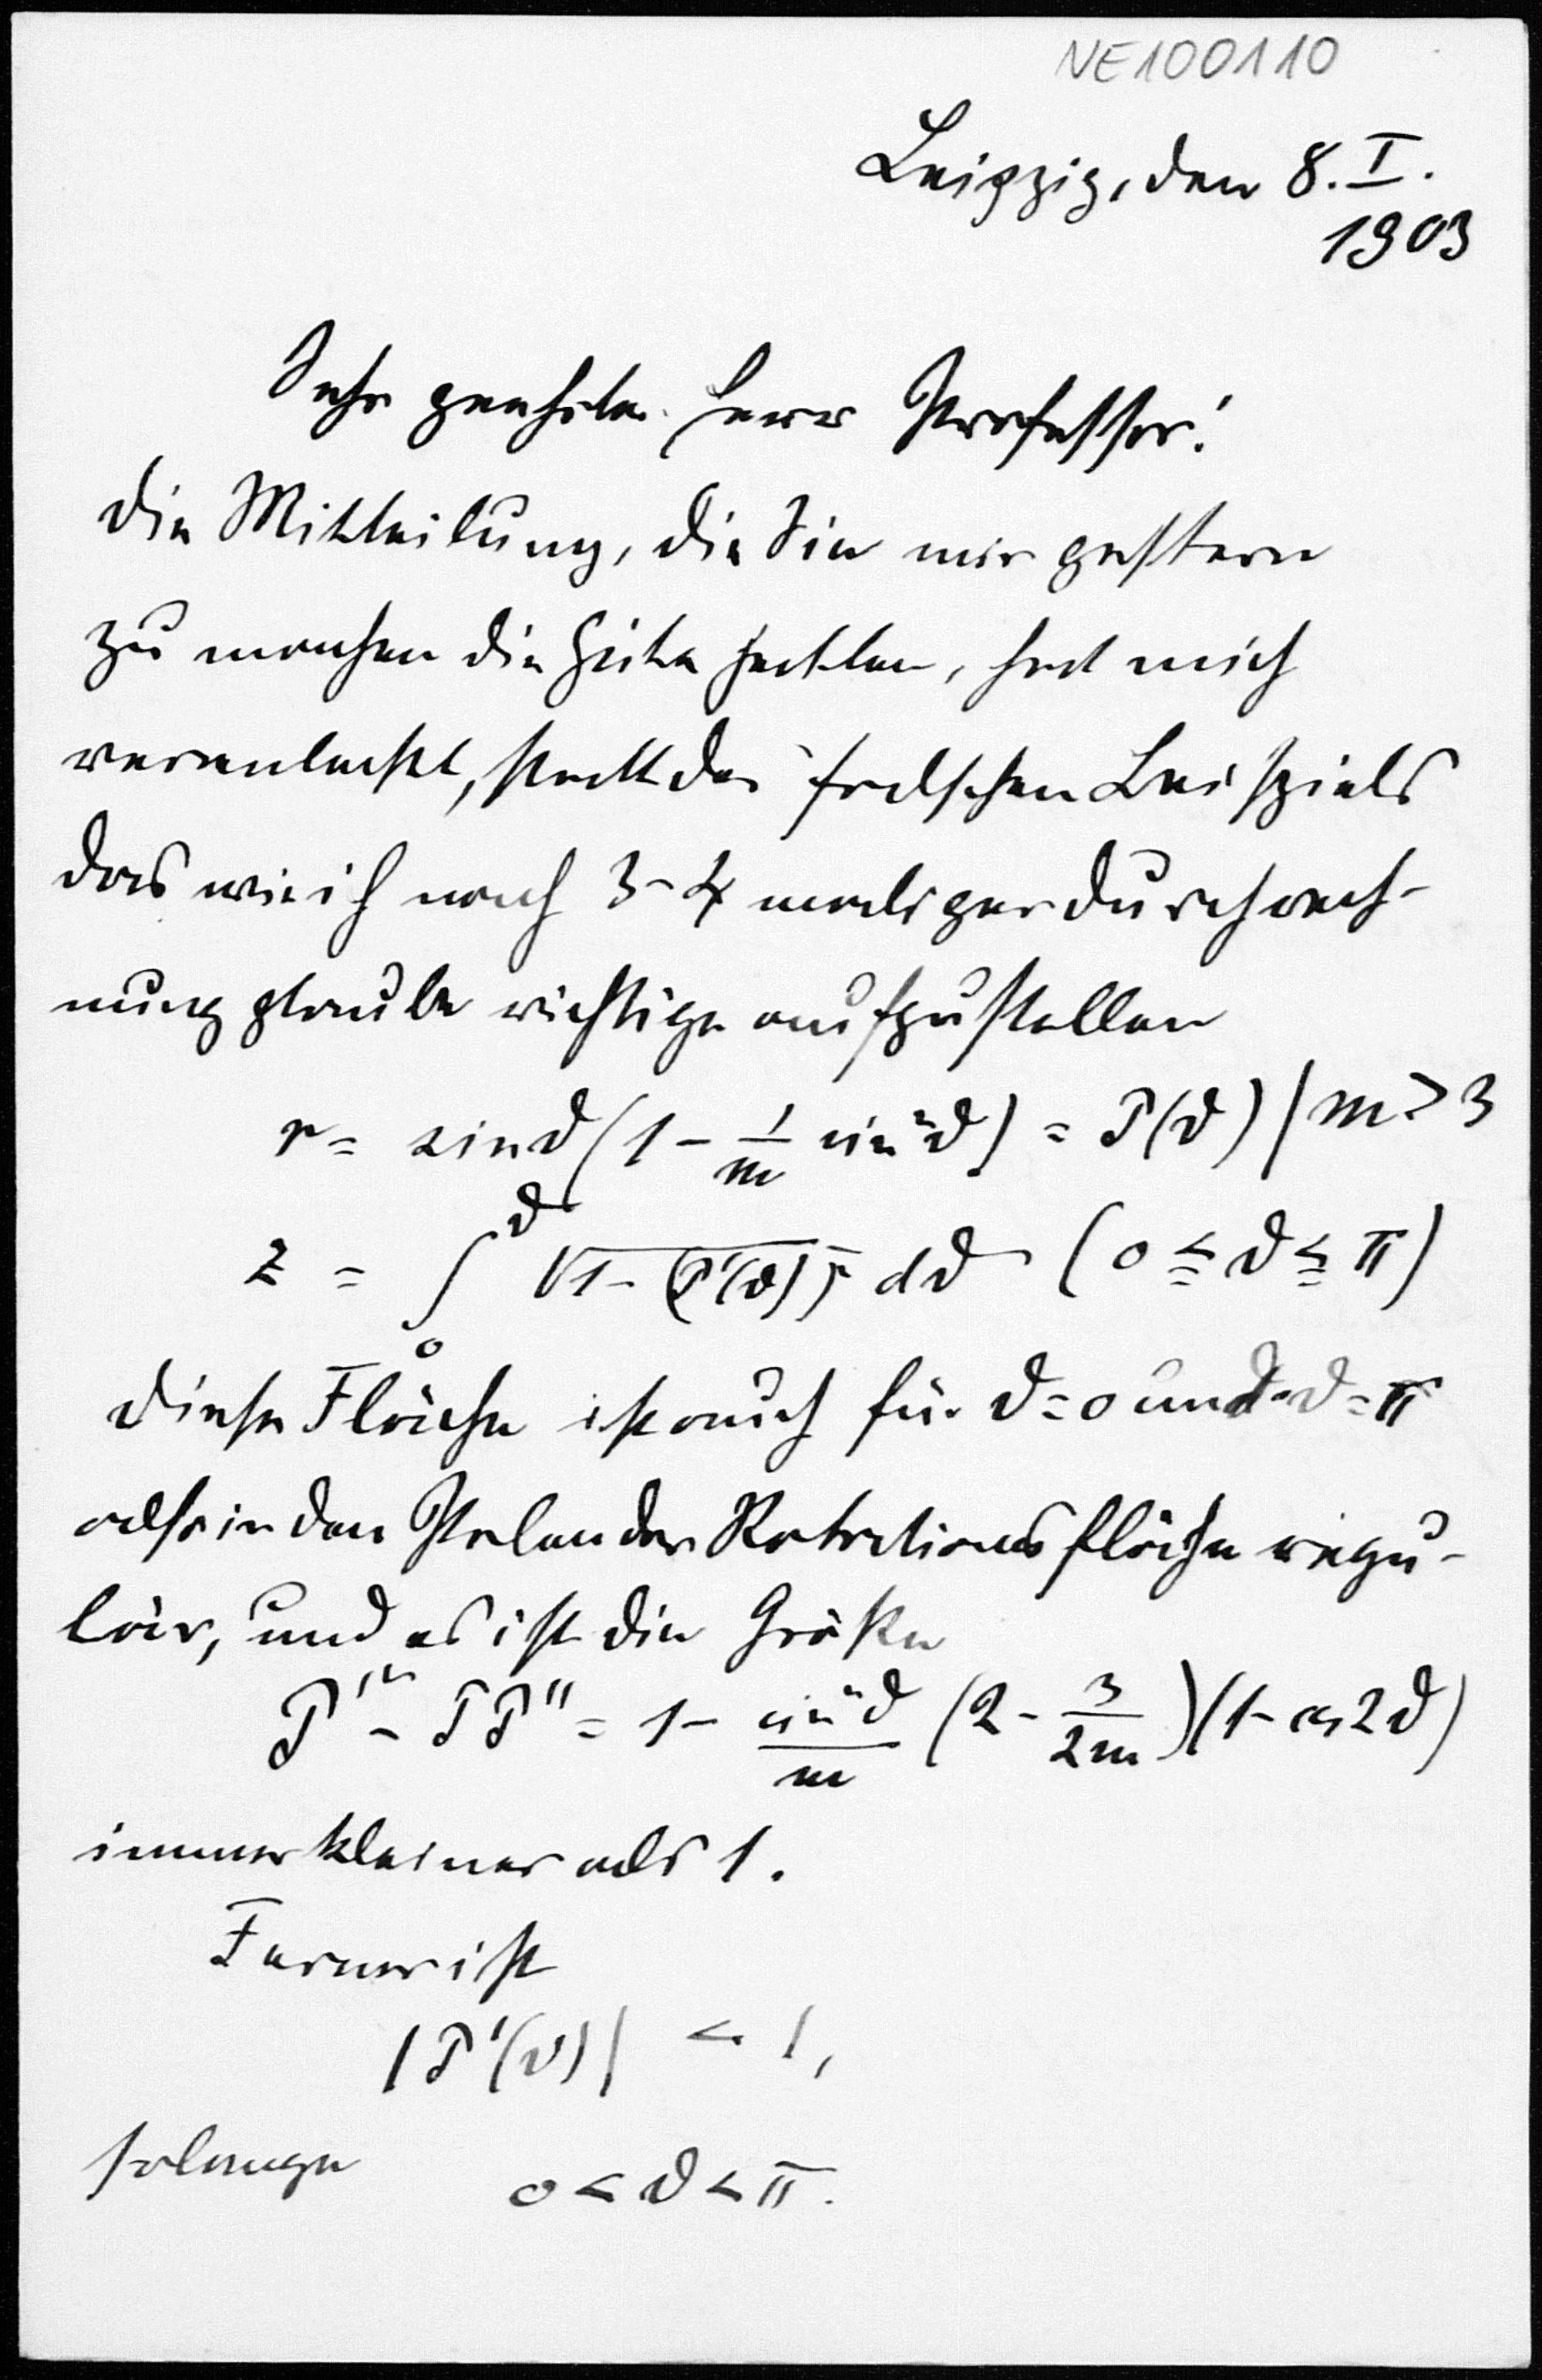 NE100110
Leipzig, den 8. I.
1903
Sehr geehrter Herr Professor!
Die Mittheilung, die Sie mir gestern
zu machen die Güte hatten, hat mich
veranlaßt, statt des falschen Beispiels
das wie ich nach 3-4 maliger Durchrech-
nung glaube richtige aufzustellen
r = sin ϑ (1 - 1/m sin²ϑ) = P(ϑ) | m > 3
z = ∫₀^ϑ √(1 - (P'(ϑ))²) dϑ (0 ≦ ϑ ≦ π)
Diese Fläche ist auch für ϑ = 0 und ϑ = π
also in den Polen der Rotationsfläche regu-
lär, und es ist die Größe
P'² - PP'' = 1 - sin²ϑ/m (2 - 3/2m)(1 - cos 2ϑ)
immer kleiner als 1.
Ferner ist
|P'(ϑ)| < 1,
solange 0 < ϑ < π.